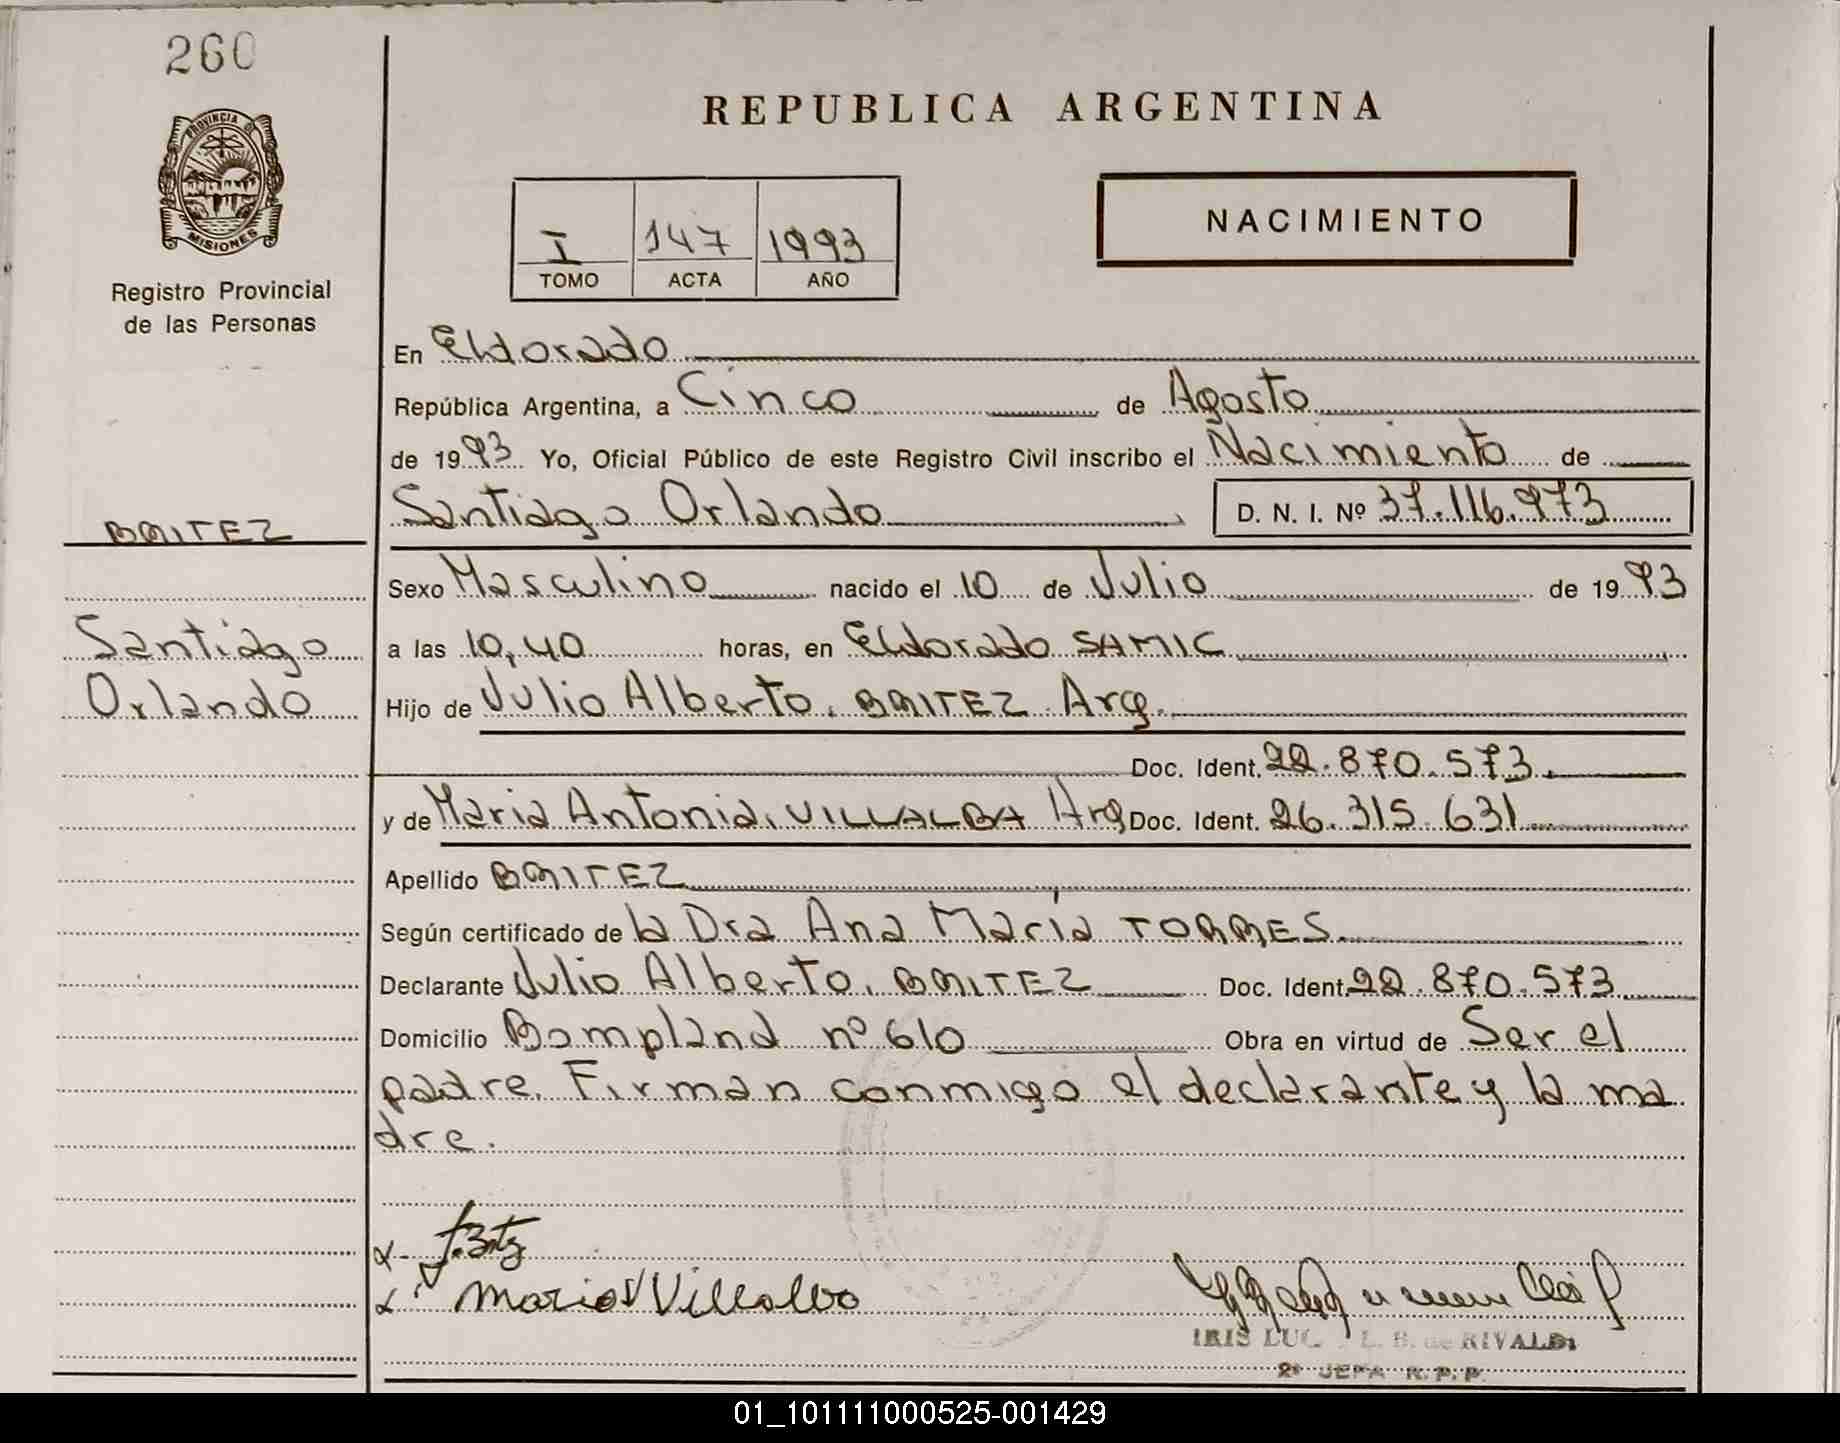 260
PROVINCIA DE
MISIONES
Registro Provincial
de las Personas
REPUBLICA ARGENTINA
I 147 1993
TOMO ACTA AÑO
NACIMIENTO
En Eldorado
República Argentina, a Cinco de Agosto
de 1993 Yo, Oficial Público de este Registro Civil inscribo el Nacimiento de
BNITEZ
Santiago Orlando D. N. I. Nº 37.116.973
Sexo Masculino nacido el 10 de Julio de 1993
Santiago
a las 10,40 horas, en Eldorado SAMIC
Orlando
Hijo de Julio Alberto. BNITEZ Arg.
Doc. Ident. 22.870.573.
y de Maria Antonia. VILLALBA Arg Doc. Ident. 26.315.631
Apellido BNITEZ
Según certificado de la Dra Ana María TORRES
Declarante Julio Alberto. BNITEZ Doc. Ident. 22.870.573
Domicilio Bompland nº 610 Obra en virtud de Ser el
padre. Firman conmigo el declarante y la ma
dre.
Maria Villalba
IRIS LUC L. B. de RIVALDI
2º JEFA R.P.P.
01_101111000525-001429